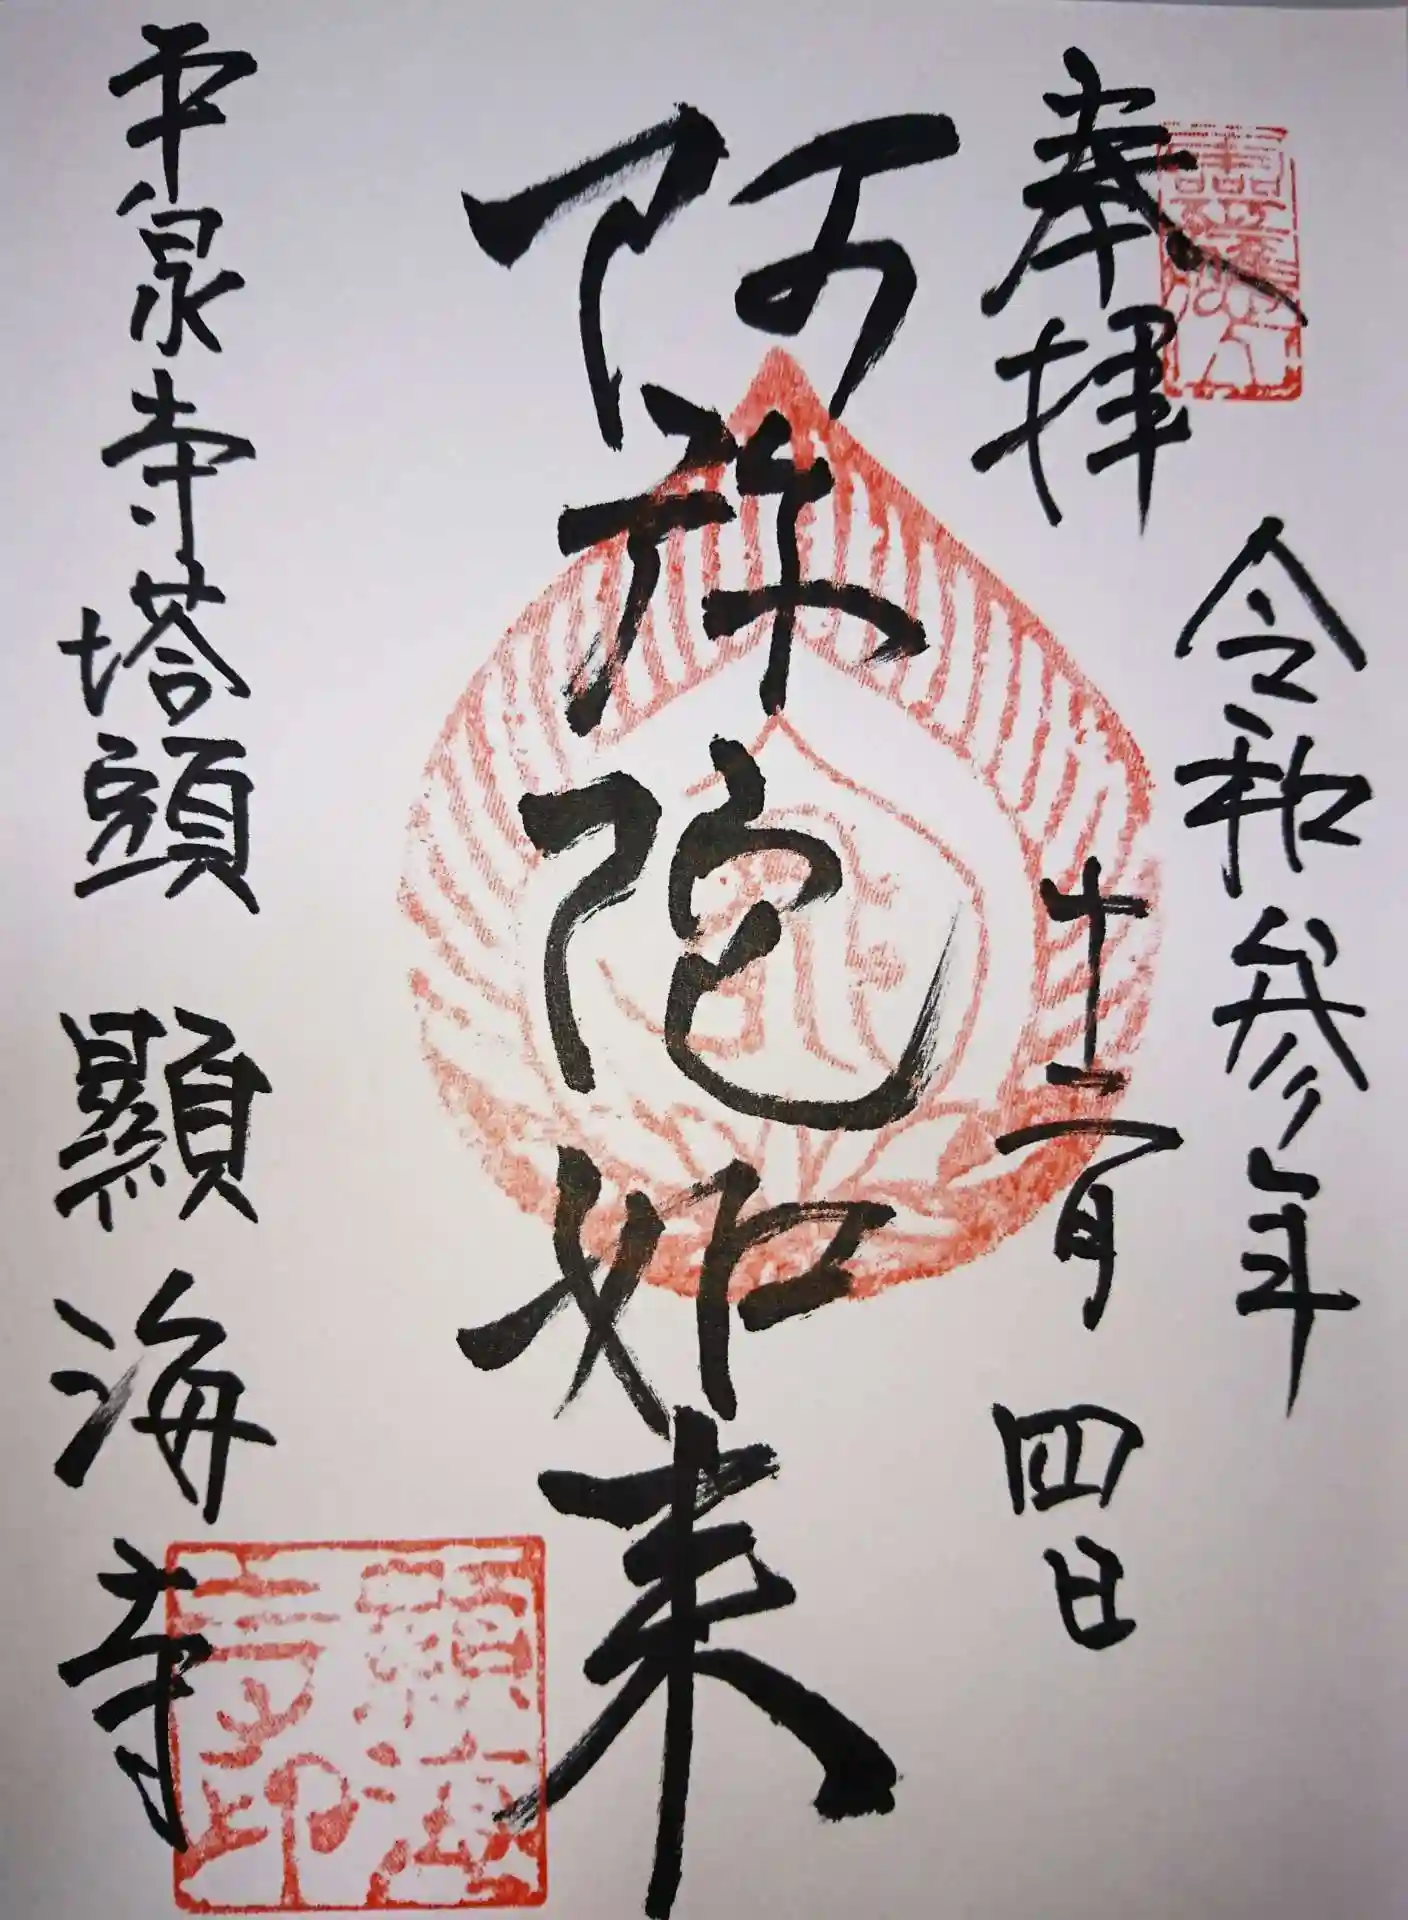 奉拝
令和参年
十二月四日
阿弥陀如来
平泉寺塔頭 顯海寺
顯海
寺印